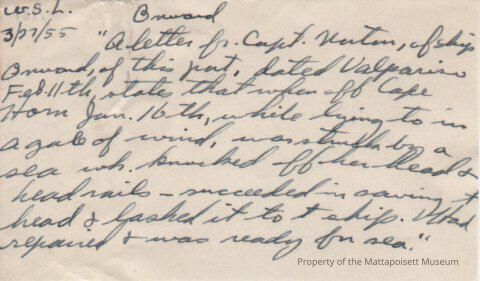 W.S.L. Onward
3/27/55 "A letter fr. Capt. Norton, of ship
Onward, of this port, dated Valpariso
Feb. 11th, states that when off Cape
Horn Jan. 16th, while lying to in
a gale of wind, was struck by a
sea wh. knocked off her head &
head rails - succeeded in saving t
head & lashed it to t ship. Had
repaired & was ready for sea."
Property of the Mattapoisett Museum